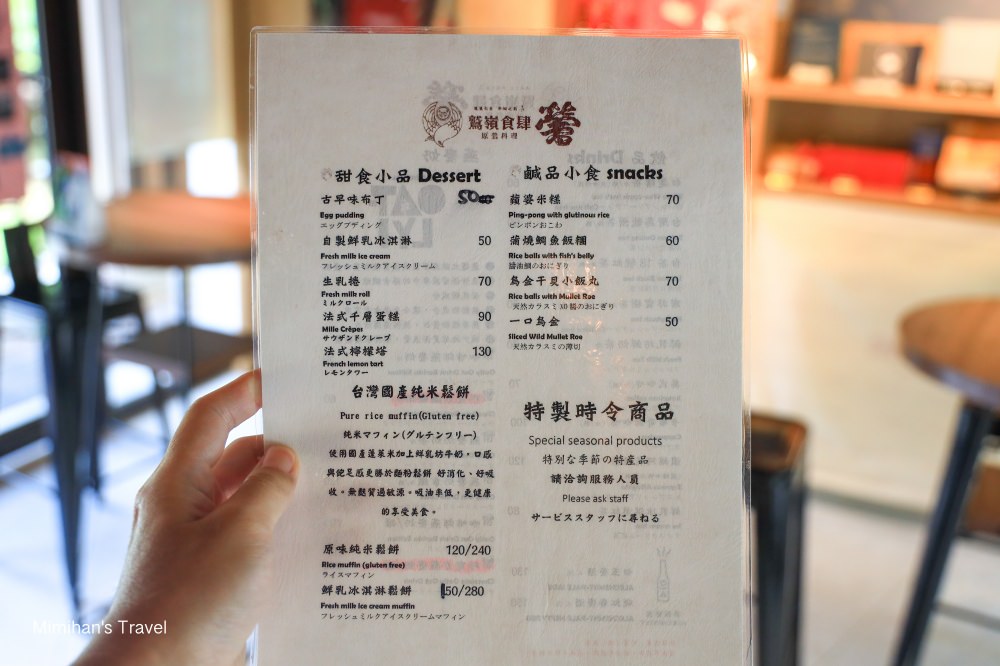 鷲嶺食肆
原島料理
甜食小品 Dessert
古早味布丁
Egg pudding
エッグプディング
自製鮮乳冰淇淋 50
Fresh milk ice cream
フレッシュミルクアイスクリーム
生乳捲 70
Fresh milk roll
ミルクロール
法式千層蛋糕 90
Mille Crêpes
サウザンドクレープ
法式檸檬塔 130
French lemon tart
レモンタワー
台灣國產純米鬆餅
Pure rice muffin(Gluten free)
純米マフィン(グルテンフリー)
使用國產蓬萊米加上鮮乳坊牛奶，口感
與飽足感更勝於麵粉鬆餅 好消化、好吸
收。無麩質過敏源。吸油率低，更健康
的享受美食。
原味純米鬆餅 120/240
Rice muffin (gluten free)
ライスマフィン
鮮乳冰淇淋鬆餅 150/280
Fresh milk ice cream muffin
フレッシュミルクアイスクリームマフィン
鹹品小食 snacks
蘋婆米糕 70
Ping-pong with glutinous rice
ピンポンおこわ
蒲燒鯛魚飯糰 60
Rice balls with fish's belly
醬油鯛のおにぎり
烏金干貝小飯丸 70
Rice balls with Mullet Roe
天然カラスミXO醬のおにぎり
一口烏金 50
Sliced Wild Mullet Roe
天然カラスミの薄切
特製時令商品
Special seasonal products
特別な季節の特産品
請洽詢服務人員
Please ask staff
サービススタッフに尋ねる
Mimihan's Travel